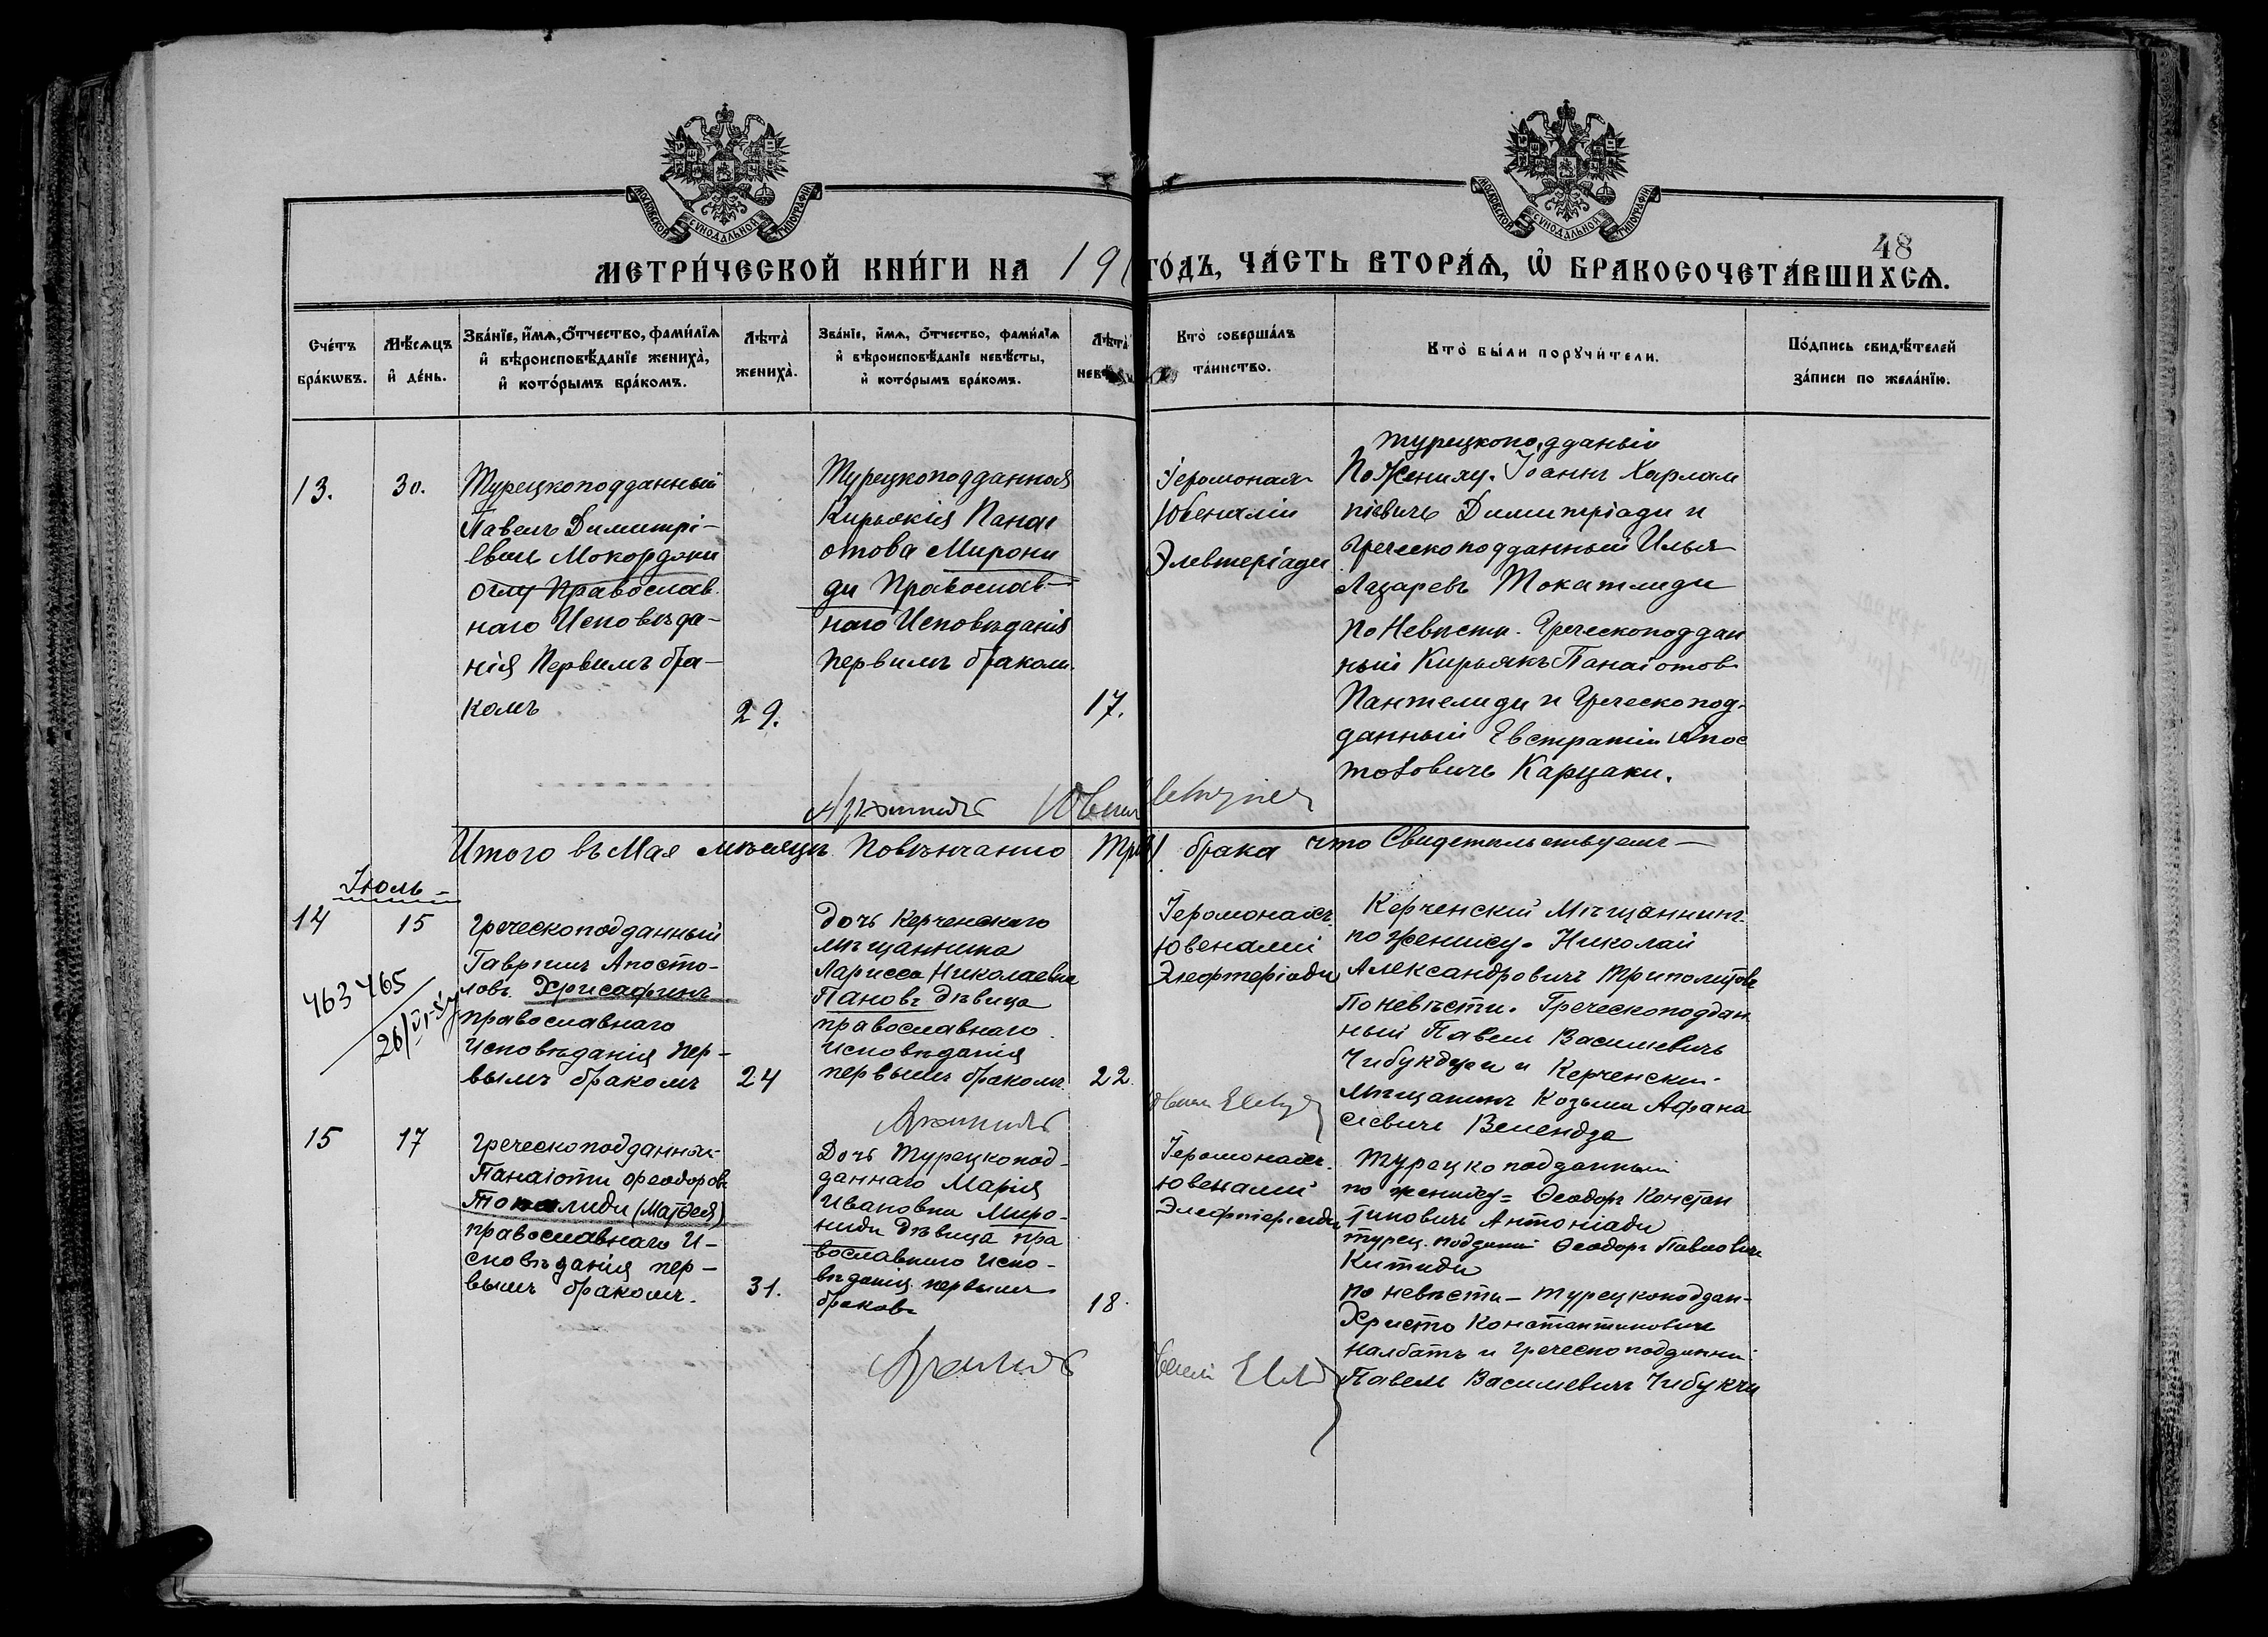 МОСКОВСКОЙ СУНОДАЛЬНОЙ ТИПОГРАФІИ
МОСКОВСКОЙ СУНОДАЛЬНОЙ ТИПОГРАФІИ
48
МЕТРИ́ЧЕСКОЙ КНИ́ГИ НА 19
ГО́ДЪ, ЧА́СТЬ ВТОРА́Ѧ, Ѽ БРАКОСОЧЕТА́ВШИХСѦ.
Сче́тъ
бра́кѡвъ.
Мѣ́сѧцъ
и҆ де́нь.
Зва́нїе, и҆́мѧ, ѻ҆́тчество, фами́лїѧ
и҆ вѣроисповѣ́данїе жениха̀,
и҆ кото́рымъ бра́комъ.
Лѣта̀
жениха̀.
Зва́нїе, и҆́мѧ, ѻ҆́тчество, фами́лїѧ
и҆ вѣроисповѣ́данїе невѣ́сты,
и҆ кото́рымъ бра́комъ.
Лѣта̀
невѣ
Кто̀ соверша́лъ
та́инство.
Кто̀ бы́ли порꙋчи́тели.
По́дпись свидѣ́телей
за́писи по жела́нїю.
13.
30.
Турецкоподданный
Павелъ Димитрі-
евъ Мокордони
оглу Православ
наго Исповѣда-
нія Первымъ бра-
комъ
29.
Турецкоподданная
Кирьякія Панаі
отова Мирони
ди Православ-
наго Исповѣданія
первымъ бракомъ.
17.
Іеромонахъ
Ювеналій
Элевтеріади
турецкоподданый
По Жениху. Іоаннъ Харлам
піевичъ Димитріади и
Греческоподданный Илья
Лазаревъ Токатлиди
По Невѣсти. Греческоподдан
ный Кирьякъ Панаіотовъ
Пантелиди и Греческопод-
данный Евстратій Апос
толовичъ Карцаки.
Итого въ Мая мѣсяцѣ Повѣнчанно Три брака что Свидетельствуемъ —
Іюль
14
15
463 465
26/VI-
Греческоподданный
Гавріилъ Апосто-
ловъ Хрисафинъ
православнаго
Исповѣданія пер-
вымъ бракомъ
24
Дочъ Керченскаго
мѣщанина
Ларисса Николаевна
Пановъ дѣвица
православнаго
Исповѣданія
первымъ бракомъ
22
Іеромонахъ
Ювеналій
Элефтеріади
Керченскій Мѣщаннинъ
по жениху. Николай
Александровичъ Триполитовъ
По невѣсти. Греческоподдан
ный Павелъ Василіевичъ
Чибукджи и Керченскій
Мѣщанинъ Козьма Афана
сіевичъ Велендза
15
17
Греческоподданный
Панаіоти Феодоровъ
лиди (Матѳея)
православнаго И-
сповѣданія пер-
вымъ бракомъ.
31.
Дочъ Турецкопод-
даннаго Марія
Ивановна Миро-
ниди дѣвица пра
вославнаго Испо-
вѣданія первымъ
браковъ
18.
Іеромонахъ
Ювеналій
Элефтеріади
Турецкоподданный
по жениху = Ѳеодоръ Констан
тиновичъ Антоніади
турец. подданий Ѳеодоръ Павловичъ
Китиди
по невѣсти — турецкоподдан-
Христо Константиновичъ
Налбатъ и греческоподданни
Павелъ Василіевичъ Чибукчи